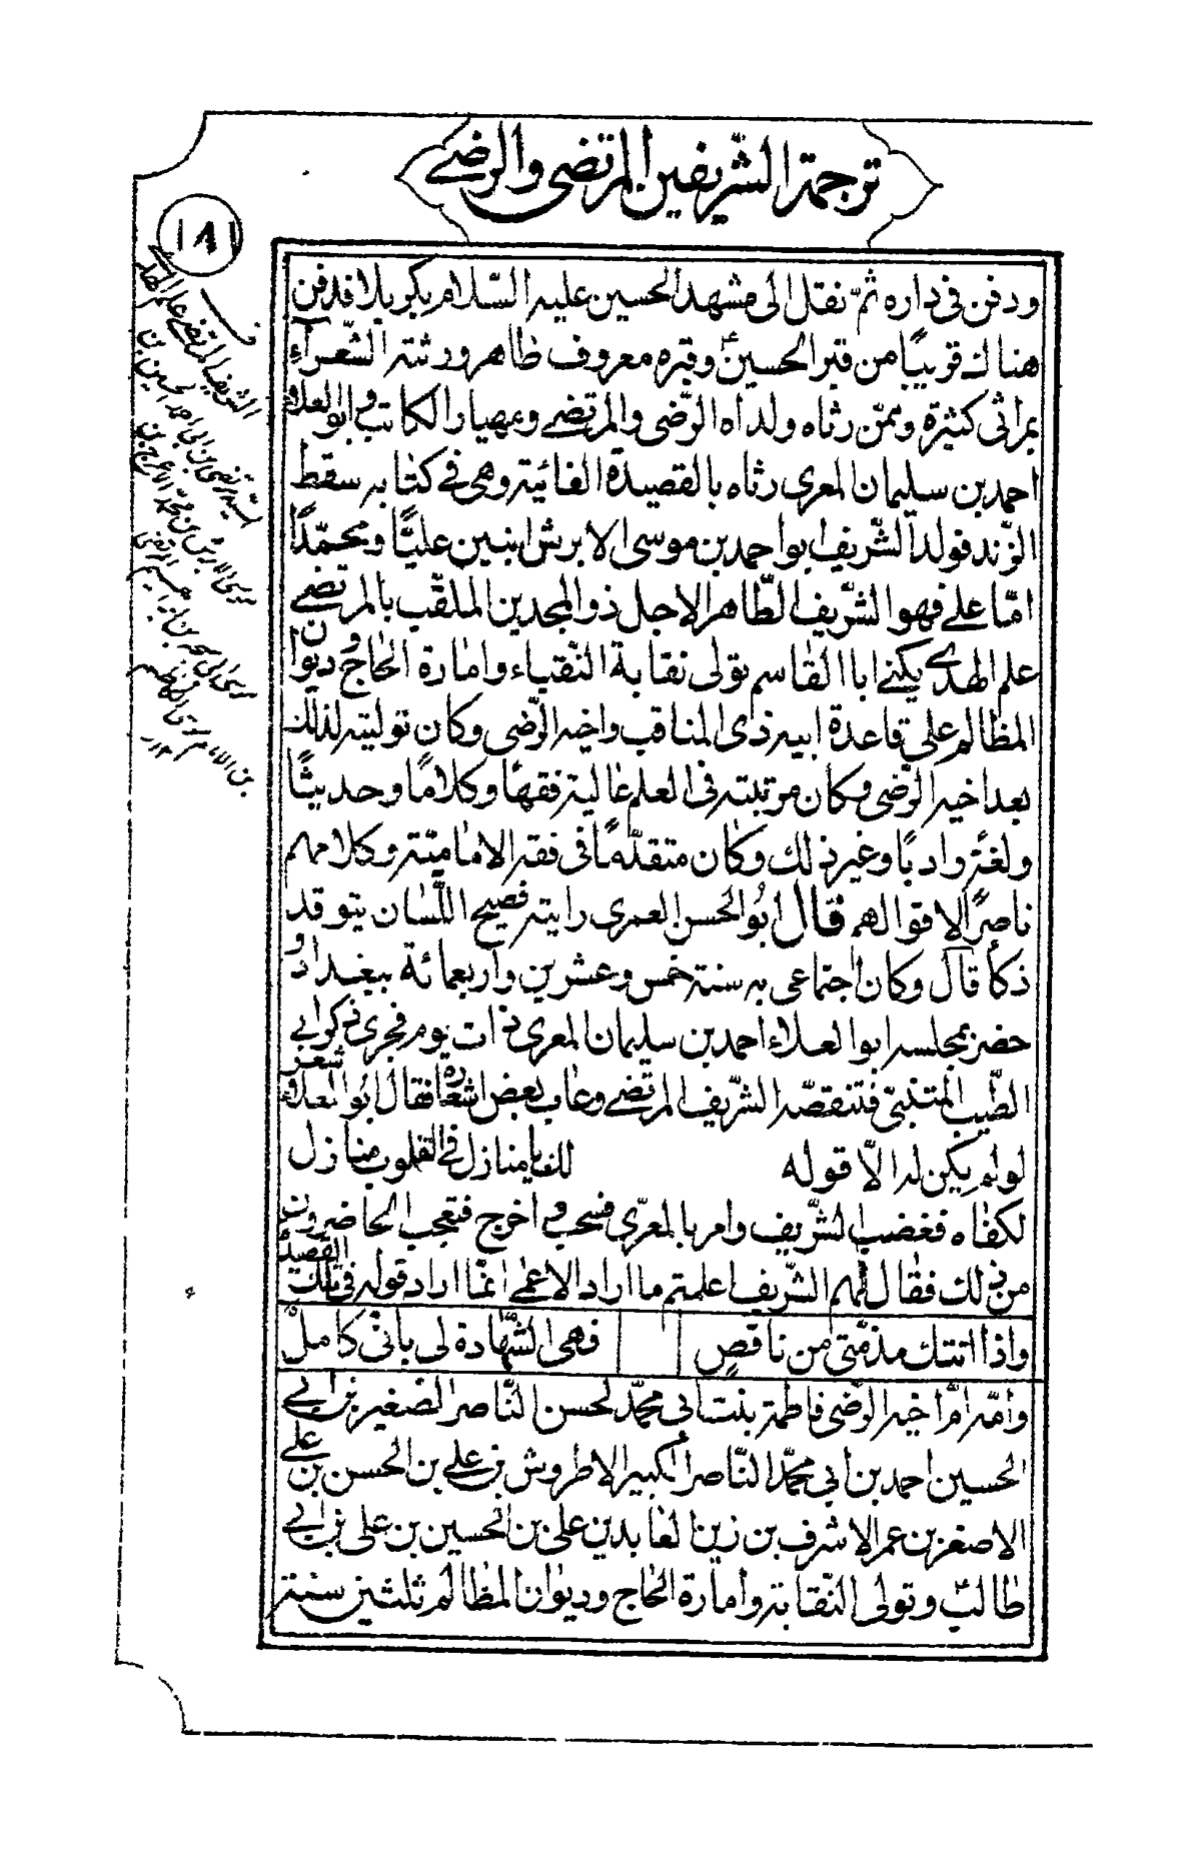 ترجمة الشّريفين المرتضى والرضى
١٨١
ودفن فى داره ثمّ نقل الى مشهد الحسين عليه السّلام بكربلا فدفن
هناك قريبًا من قبر الحسين ع وقبره معروف ظاهر ورثته الشّعرآء
بمراثى كثيرة وممّن رثاه ولداه الرّضى والمرتضى ومهيار الكاتب وابو العلاء
احمد بن سليمان المعرى رثاه بالقصيدة الفائية وهى فى كتابه سقط
الزند فولد الشّريف ابو احمد بن موسى الابرش ابنين عليًّا ومحمّدًا
امّا على فهو الشّريف الطّاهر الاجل ذو المجدين الملقّب بالمرتضى
علم الهدى يكنى ابا القاسم تولى نقابة النّقباء وامارة الحاج وديوان
المظالم على قاعدة ابيه ذى المناقب واخيه الرّضى وكان توليته لذلك
بعد اخيه الرّضى وكان مرتبته فى العلم عالية فقهًا وكلامًا وحديثًا
ولغة وادبًا وغير ذلك وكان متقدّمًا فى فقه الاماميّة وكلامهم
ناصرًا لاقوالهم قال ابو الحسن العمرى رايته فصيح اللّسان يتوقد
ذكاً قال وكان اجتماعى به سنة خمس وعشرين واربعمائة ببغداد و
حضر بمجلسه ابو العلاء احمد بن سليمان المعرى ذات يوم فجرى ذكر ابى
الطّيب المتنبّى فتنقصّه الشّريف المرتضى وعاب بعض اشعاره فقال ابو العلاء
لو لم يكن له الّا قوله لك يا منازل فى القلوب منازل
لكفاه فغضب الشّريف وامر بالمعرّى فسحب واخرج فتعجب الحاضرون
من ذلك فقال لهم الشّريف اعلمتم ما اراد الاعمى انّما اراد قوله فى تلك القصيدة
واذا اتتك مذمّتى من ناقصٍ فهى الشّهادة لى بانّى كامل
وأمّه امّ اخيه الرّضى فاطمة بنت ابى محمّد الحسن النّاصر الصّغير بن ابى
الحسين احمد بن ابى محمّد النّاصر الكبير الاطروش بن على بن الحسن بن على
الاصغر بن عمر الاشرف بن زين العابدين على بن الحسين بن على بن ابى
طالب ع وتولى النّقابة وامارة الحاج وديوان المظالم ثلثين سنة